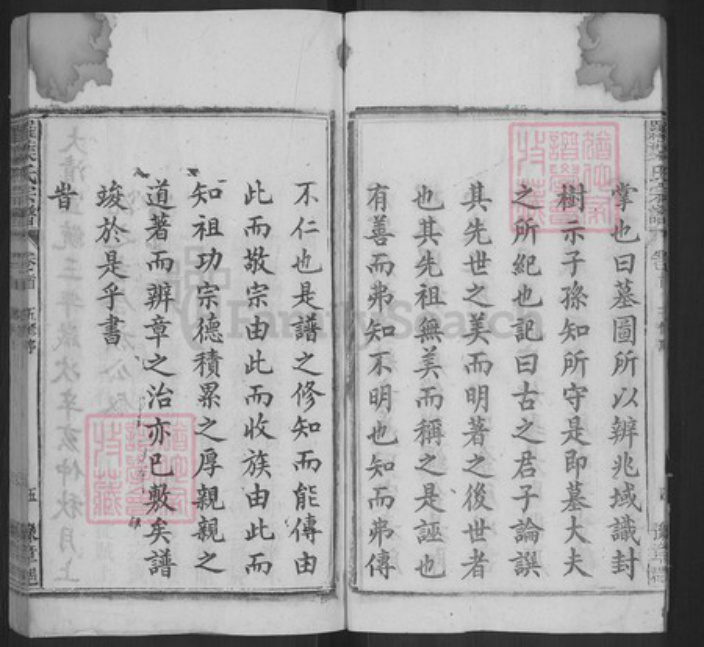 掌也曰墓圖所以辨兆域識封
樹示子孫知所守是即墓大夫
之所紀也記曰古之君子論譔
其先世之美而明著之後世者
也其先祖無美而稱之是誣也
有善而弗知不明也知而弗傳
不仁也是譜之修知而能傳由
此而敬宗由此而收族由此而
知祖功宗德積累之厚親親之
道著而辨章之治亦已敷矣譜
竣於是乎書
旹
葉氏宗譜
卷首
五修序
五
FamilySearch